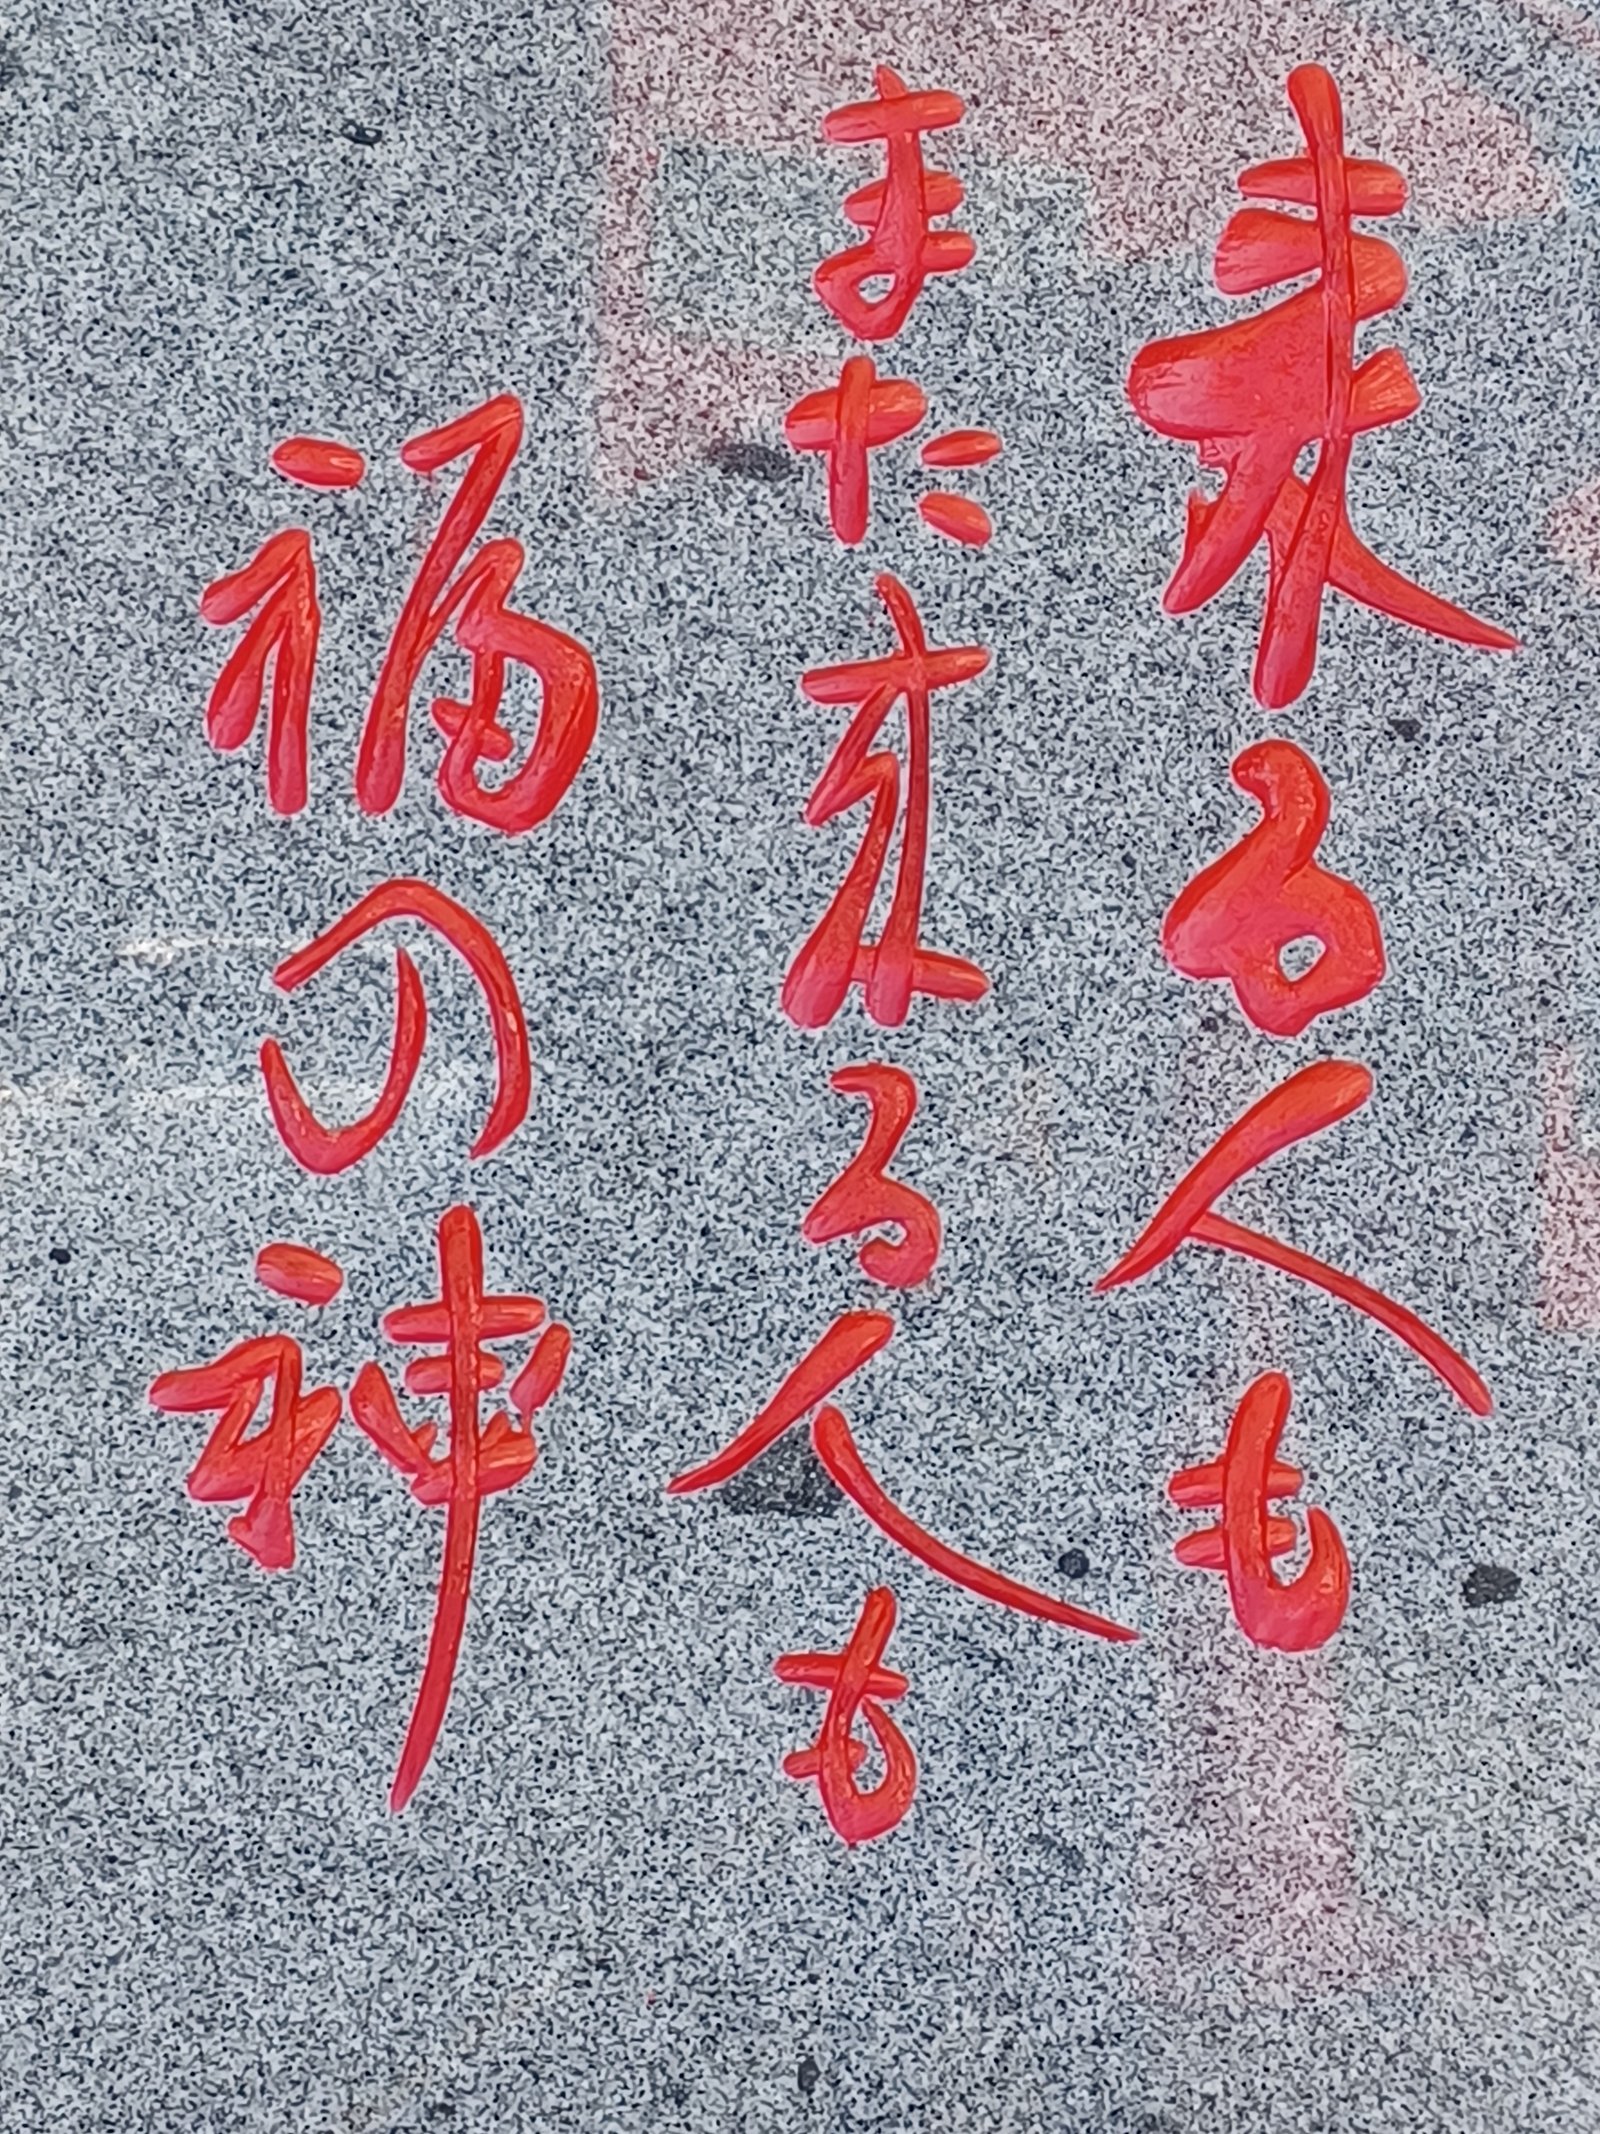 来る人も
また来る人も
福の神